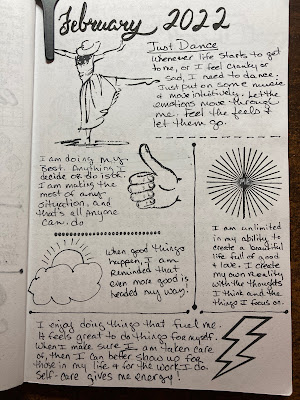 February 2022
Just Dance
Whenever life starts to get
to me, or I feel cranky or
sad, I need to dance.
Just put on some music
& move intuitively. Let the
emotions move through
me. Feel the feels &
let them go.
I am doing my
Best. Anything I
decide or do is ok.
I am making the
most of any
situation, and
that's all anyone
can do
I am unlimited
in my ability to
create a beautiful
life full of good
& love. I create
my own reality
with the thoughts
I think and the
things I focus on.
When good things
happen, I am
Reminded that
even more good is
headed my way!
I enjoy doing things that fuel me.
It feels great to do things for myself.
When I make sure I am taken care
of, then I can better show up for
those in my life & for the work I do.
Self-care gives me energy!